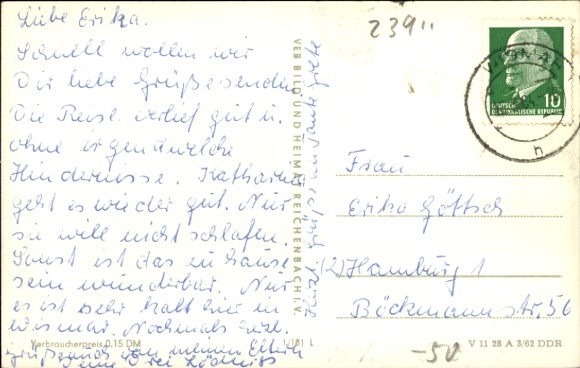 Liebe Erika.
Schnell wollen wir
Dir liebe Grüße senden
Die Reise verlief gut u.
ohne irgendwelche
Hindernisse. Katharina
geht es wieder gut. Nur
sie will nicht schlafen.
Sonst ist das zu Hause
sein wunderbar. Nur
es ist sehr kalt hier in
Wismar. Nochmals herzl.
Grüße auch von meinen Eltern
Deine Drei
Herzl. Grüße an Tante Grete
VEB BILD UND HEIMAT REICHENBACH I. V.
239"
10
DEUTSCHE
DEMOKRATISCHE REPUBLIK
WISMAR
h
Frau
Erika Göttsch
(2) Hamburg 1
Böckmannstr. 56
Verbraucherpreis 0,15 DM
1/181 L
V 11 28 A 3/62 DDR
-50